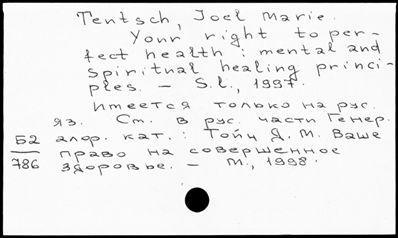 Tentsch, Joel Marie.
Your right to per-
fect health : mental and
spiritual healing princi-
ples. – S.l., 1997.
Имеется только на рус.
яз. См. в рус. части Генер.
Б2 алф. кат. : Тойч Д. М. Ваше
786 право на совершенное
здоровье. – М., 1998.